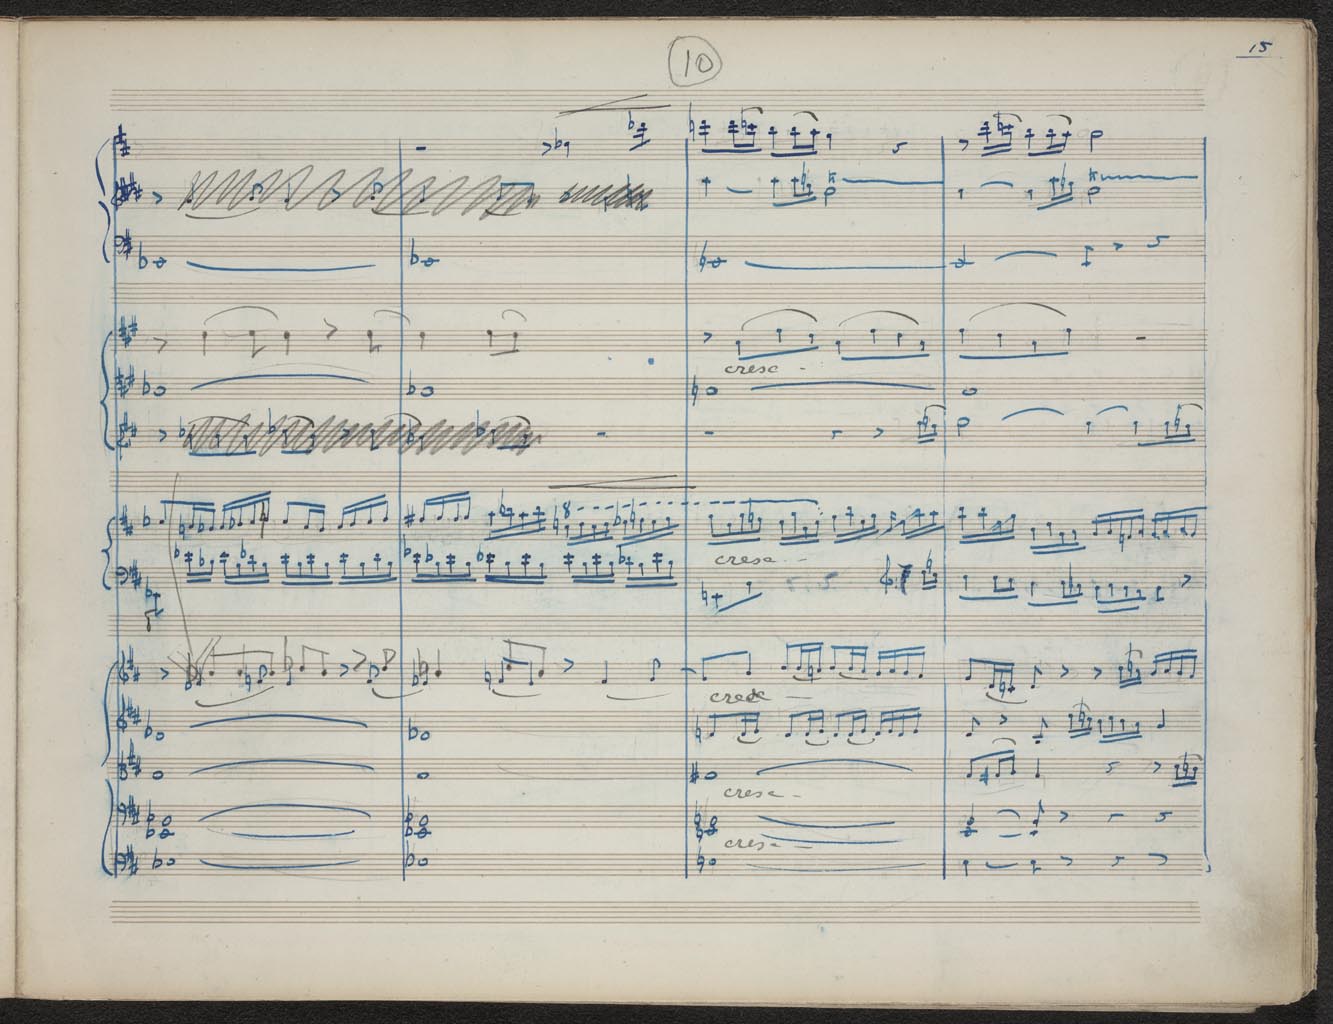 15
10
8
cresc -
cresc - -
cresc —
cresc -
cresc - —